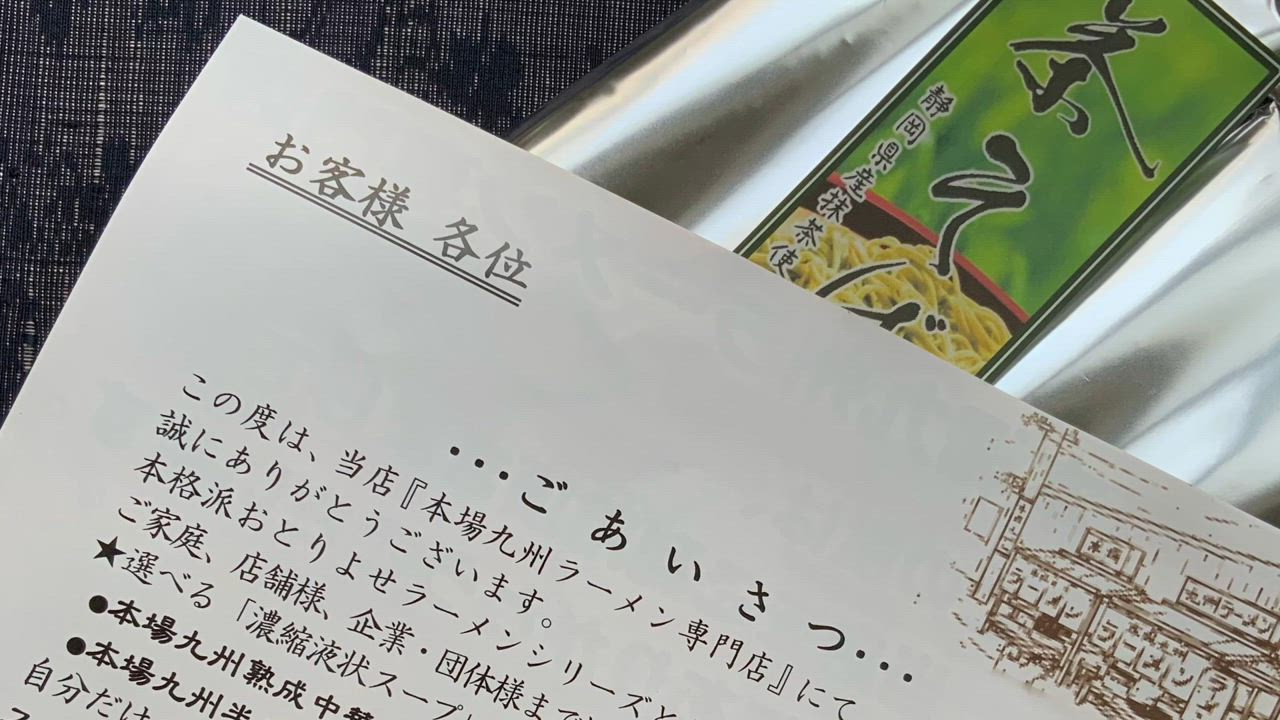 お客様 各位
・・・ごあいさつ・・・
この度は、当店『本場九州ラーメン専門店』にて
誠にありがとうございます。
本格派おとりよせラーメンシリーズと
ご家庭、店舗様、企業・団体様まで
★選べる「濃縮液状スープ
●本場九州熟成中華
●本場九州半
自分だけ
茶そば
静岡県産抹茶使